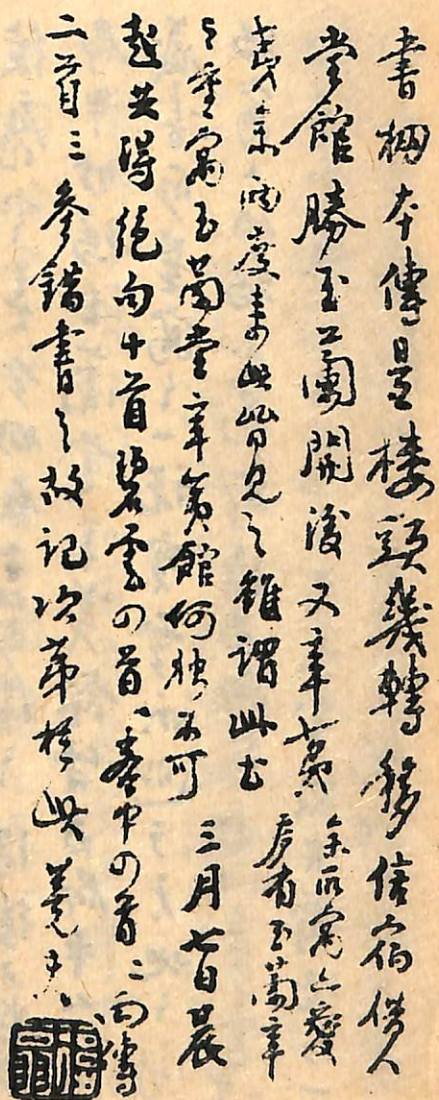 書棚本傳是樓頭幾轉移信宿借人
堂館勝玉蘭開後又辛夷 余所寓之處
房有玉蘭辛
夷余兩度來此皆見之雖謂此書
之重寓玉蘭堂辛夷館何獨不可 三月七日晨
起共得絕句十首碧雲四首春中四首
二首三參錯書之故記次第於此 蕘夫